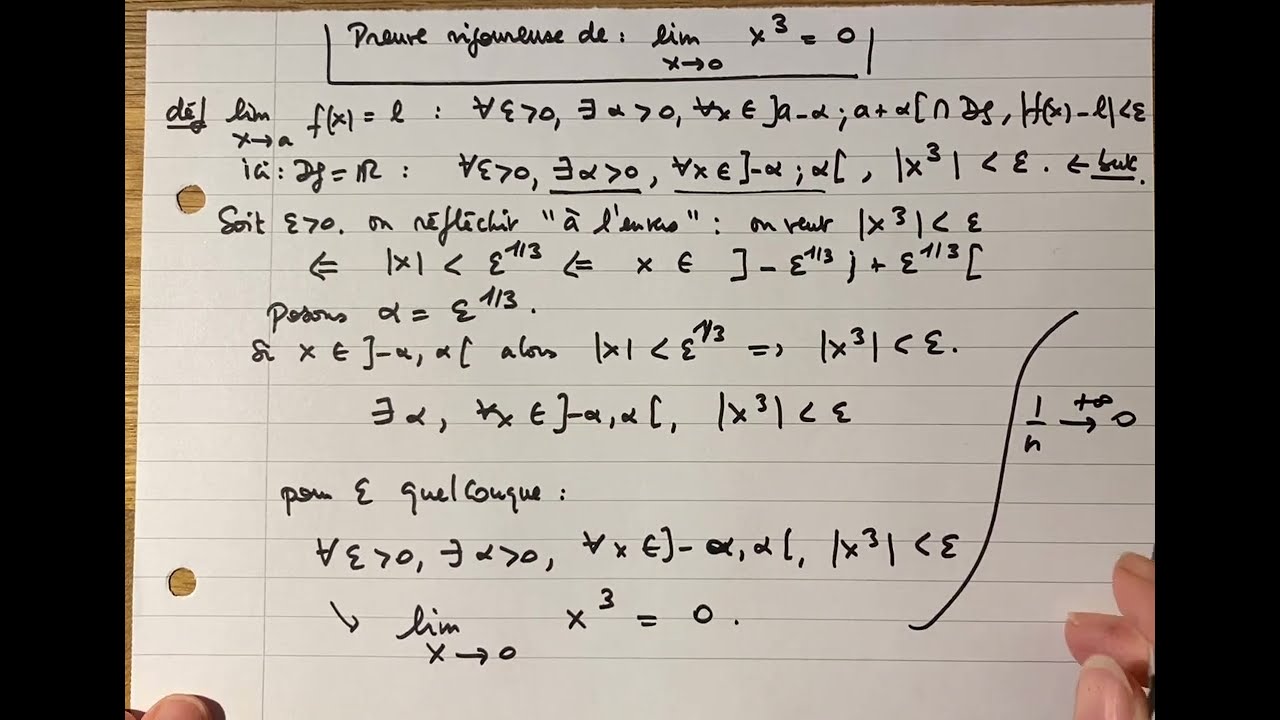 Preuve rigoureuse de : lim x→0 x³ = 0
déf lim x→a f(x) = l : ∀ε>0, ∃α>0, ∀x ∈ ]a-α ; a+α[ ∩ Df, |f(x)-l|<ε
ici : Df = ℝ : ∀ε>0, ∃α>0, ∀x ∈ ]-α ; α[ , |x³| < ε. ← but.
Soit ε>0. on réfléchit "à l'envers" : on veut |x³| < ε
⇐ |x| < ε^1/3 ⇐ x ∈ ]-ε^1/3 ; + ε^1/3[
Posons α = ε^1/3.
Si x ∈ ]-α, α[ alors |x| < ε^1/3 => |x³| < ε.
∃α, ∀x ∈ ]-α,α[, |x³| < ε
1/n →+∞ 0
pour ε quelconque :
∀ε>0, ∃α>0, ∀x ∈ ]-α,α[, |x³| < ε
↘ lim x→0 x³ = 0.